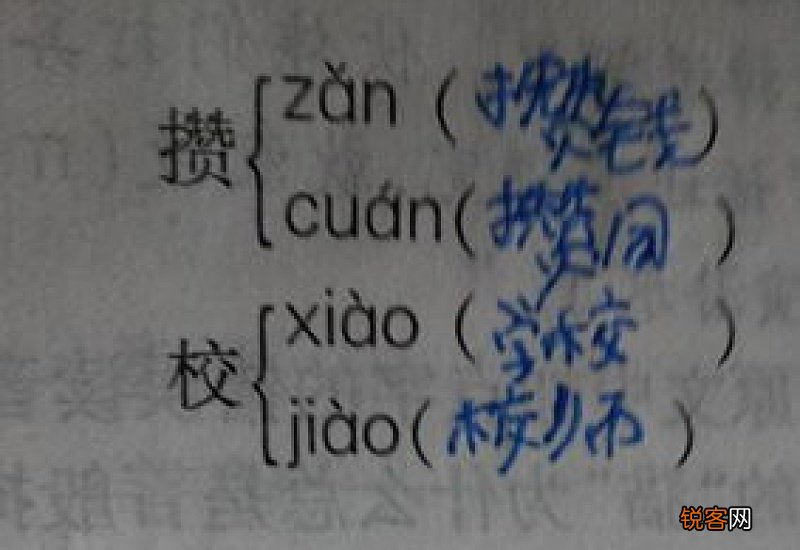 攒
zǎn ( 攒钱 )
cuán( 攒 )
校
xiào ( 学校 )
jiào( 校师 )
锐客网